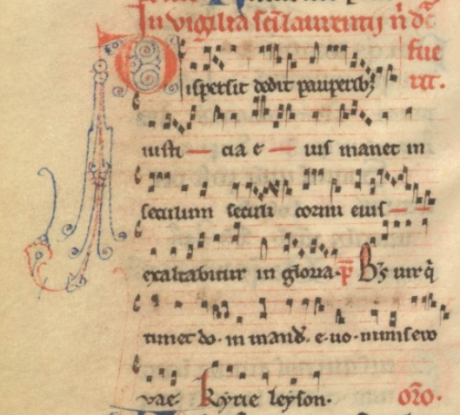 In vigilia sci laurentij n̄ dr̄
fue
Dispersit dedit pauperibȝ rit.
iusti — cia e — ius manet in
seculum seculi cornu eius —
exaltabitur in gloria. p̄ Bȝ uir q̄
timet do· in mand̄· e·uo· nimis eio
vae· Kyrie leyson· or̄o·